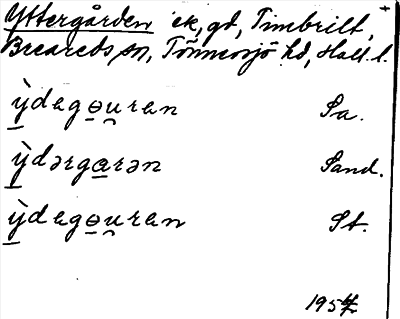 Yttergården ek, gd, Timbrilt,
Breareds sn, Tönnersjö hd, Hall. l.
ỳ̲dagɵ̲u̯ran Sa.
ỳ̲dərga̲rən Sand.
ỳ̲dagɵ̲u̯ran St.